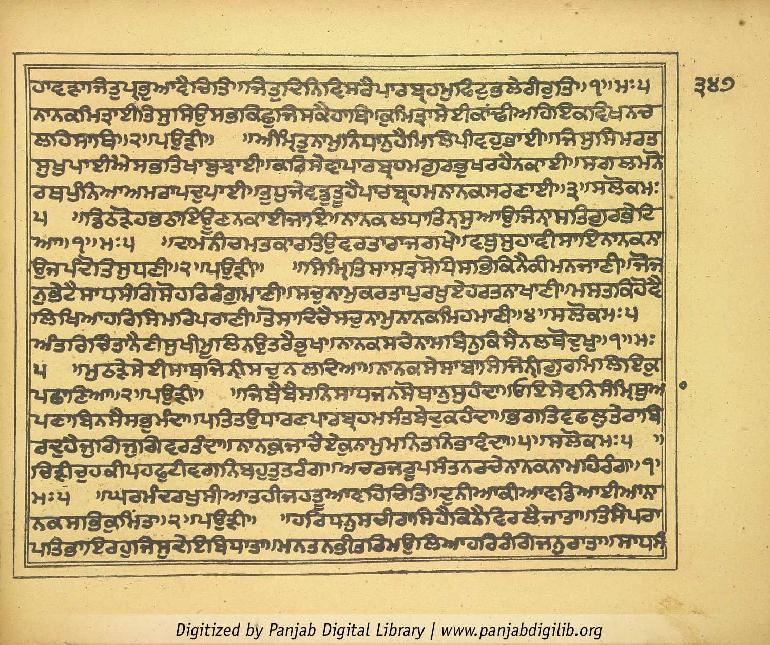 ਹਾਵਣਾਜਿਤੁਪ੍ਰਭੁਆਵੈਚਿਤਿ॥ਜਿਤੁਦਿਨਿਵਿਸਰੈਪਾਰਬ੍ਰਹਮੁਫਿਟੁਭਲੇਰੀਰੁਤਿ॥੧॥ਮਃ੫
ਨਾਨਕਮਿਤ੍ਰਾਈਤਿਸੁਸਿਉਸਭਕਿਛੁਜਿਸਕੈਹਾਥਿ॥ਕੁਮਿਤ੍ਰਾਸੇਈਕਾਂਢੀਅਹਿਇਕਵਿਖਨਚ
ਲਹਿਸਾਥਿ॥੨॥ਪਉੜੀ॥ ॥ਅੰਮ੍ਰਿਤੁਨਾਮੁਨਿਧਾਨੁਹੈਮਿਲਿਪੀਵਹੁਭਾਈ॥ਜਿਸੁਸਿਮਰਤ
ਸੁਖੁਪਾਈਐਸਭਤਿਖਾਬੁਝਾਈ॥ਕਰਿਸੇਵਾਪਾਰਬ੍ਰਹਮਗੁਰਭੁਖਰਹੈਨਕਾਈ॥ਸਗਲਮਨੋ
ਰਥਪੁੰਨਿਆਅਮਰਾਪਦੁਪਾਈ॥ਤੁਧੁਜੇਵਡੁਤੂਹੈਪਾਰਬ੍ਰਹਮਨਾਨਕਸਰਣਾਈ॥੩॥ਸਲੋਕਮਃ
੫ ॥ਡਿਠੜੋਹਭਠਾਇਊਣਨਕਾਈਜਾਇ॥ਨਾਨਕਲਧਾਤਿਨਸੁਆਉਜਿਨਾਸਤਿਗੁਰੁਭੇਟਿ
ਆ॥੧॥ਮਃ੫ ॥ਦਾਮਨੀਚਮਤਕਾਰਤਿਉਵਰਤਾਰਾਜਗਖੇ॥ਵਥੁਸੁਹਾਵੀਸਾਇਨਾਨਕਨਾ
ਉਜਪੰਦੋਤਿਸੁਧਣੀ॥੨॥ਪਉੜੀ॥ ॥ਸਿਮ੍ਰਿਤਿਸਾਸਤ੍ਰਸੋਧਿਸਭਿਕਿਨੈਕੀਮਨਜਾਣੀ॥ਜੋਜ
ਨੁਭੇਟੈਸਾਧਸੰਗਿਸੋਹਰਿਰੰਗੁਮਾਣੀ॥ਸਚੁਨਾਮੁਕਰਤਾਪੁਰਖੁਏਹਰਤਨਾਖਾਣੀ॥ਮਸਤਕਿਹੋਵੈ
ਲਿਖਿਆਹਰਿਸਿਮਰਿਪਰਾਣੀ॥ਤੋਸਾਦਿਚੈਸਚੁਨਾਮੁਨਾਨਕਮਿਹਮਾਣੀ॥੪॥ਸਲੋਕਮਃ੫
ਅੰਤਰਿਚਿੰਤਾਨੈਣੀਸੁਖੀਮੂਲਿਨਉਤਰੈਭੁਖ॥ਨਾਨਕਸਚੇਨਾਮਬਿਨੁਕਿਸੈਨਲਥੋਦੁਖੁ॥੧॥ਮਃ
੫ ॥ਮੁਠੜੇਸੇਈਸਾਥਜਿਨੀਸਚੁਨਲਦਿਆ॥ਨਾਨਕਸੇਸਾਬਾਸਿਜਿਨੀਗੁਰਮਿਲਿਇਕੁ
ਪਛਾਣਿਆ॥੨॥ਪਉੜੀ॥ ॥ਜਿਥੈਬੈਸਨਿਸਾਧਜਨਸੋਥਾਨੁਸੁਹੰਦਾ॥ਓਇਸੇਵਨਿਸੰਮ੍ਰਿਥੁਆ
ਪਣਾਬਿਨਸੈਸਭੁਮੰਦਾ॥ਪਤਿਤਉਧਾਰਣਪਾਰਬ੍ਰਹਮਸੰਤਬੇਦੁਕਹੰਦਾ॥ਭਗਤਿਵਛਲੁਤੇਰਾਬਿ
ਰਦੁਹੈਜੁਗਿਜੁਗਿਵਰਤੰਦਾ॥ਨਾਨਕੁਜਾਚੈਏਕੁਨਾਮੁਮਨਿਤਨਿਭਾਵੰਦਾ॥੫॥ਸਲੋਕਮਃ੫ ॥
ਚਿੜੀਚੁਹਕੀਪਹੁਫੁਟੀਵਗਨਿਬਹੁਤੁਤਰੰਗ॥ਅਚਰਜਰੂਪਸੰਤਨਰਚੇਨਾਨਕਨਾਮਹਿਰੰਗ॥੧॥
ਮਃ੫ ॥ਘਰਮੰਦਰਖੁਸੀਆਤਹੀਜਹਤੂਆਵਹਿਚਿਤਿ॥ਦੁਨੀਆਕੀਆਵਡਿਆਈਆਨਾ
ਨਕਸਭਿਕੁਮਿਤ॥੨॥ਪਉੜੀ॥ ॥ਹਰਿਧਨੁਸਚੀਰਾਸਿਹੈਕਿਨੈਵਿਰਲੈਜਾਤਾ॥ਤਿਸੈਪਰਾ
ਪਤਿਭਾਇਰਹੁਜਿਸੁਦੇਇਬਿਧਾਤਾ॥ਮਨਤਨਭੀਤਰਿਮਉਲਿਆਹਰਿਰੰਗਿਜਨੁਰਾਤਾ॥ਸਾਧਸੰ
੩੪੭
Digitized by Panjab Digital Library | www.panjabdigilib.org